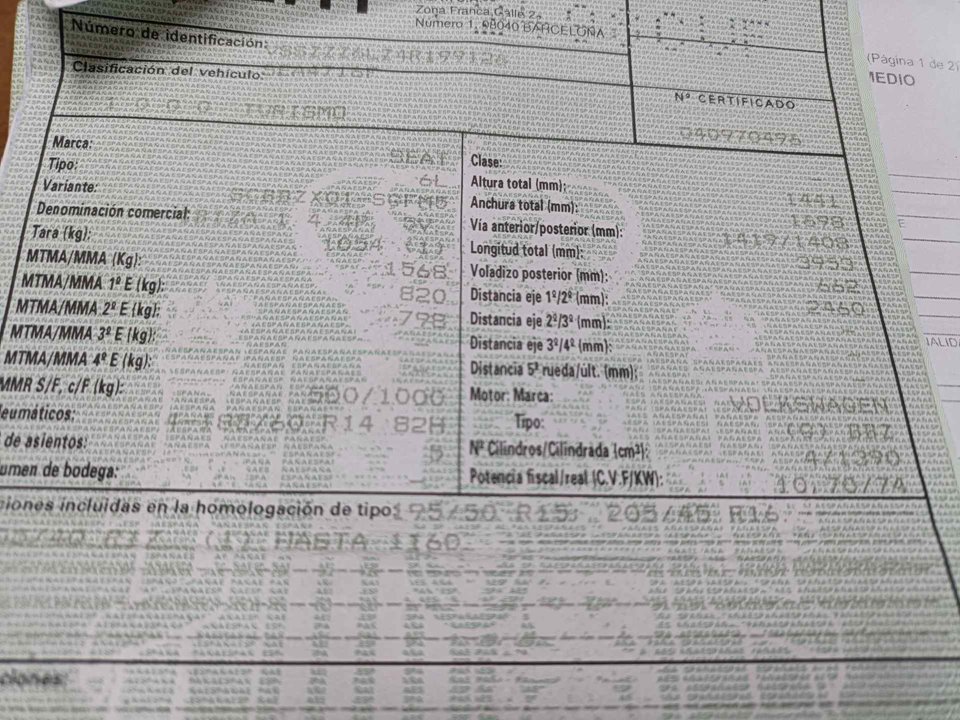 Zona Franca, Calle 2,
Número 1, 08040 BARCELONA
Número de identificación:
Clasificación del vehículo:
1000 TURISMO
Nº CERTIFICADO
040970496
(Página 1 de 2)
MEDIO
Marca: SEAT
Tipo: 6L
Variante: SGFM5
Denominación comercial: 1.4 5V
Tara (kg): 1054 (1)
MTMA/MMA (Kg): 1568
MTMA/MMA 1º E (kg): 820
MTMA/MMA 2º E (kg): 798
MTMA/MMA 3º E (kg):
MTMA/MMA 4º E (kg):
MMR S/F, c/F (kg): 500/1000
eumáticos: 4-185/60 R14 82H
de asientos: 5
umen de bodega: —
Clase: —
Altura total (mm): 1441
Anchura total (mm): 1698
Vía anterior/posterior (mm): 1419/1408
Longitud total (mm): 3953
Voladizo posterior (mm): 662
Distancia eje 1º/2º (mm): 2460
Distancia eje 2º/3º (mm):
Distancia eje 3º/4º (mm):
Distancia 5ª rueda/últ. (mm):
Motor: Marca: VOLKSWAGEN
Tipo: (G) BBZ
Nº Cilindros/Cilindrada (cm³): 4/1390
Potencia fiscal/real (C.V.F/KW): 10,70/74
ciones incluidas en la homologación de tipo: 195/50 R15; 205/45 R16
(1) HASTA 1160
ciones: